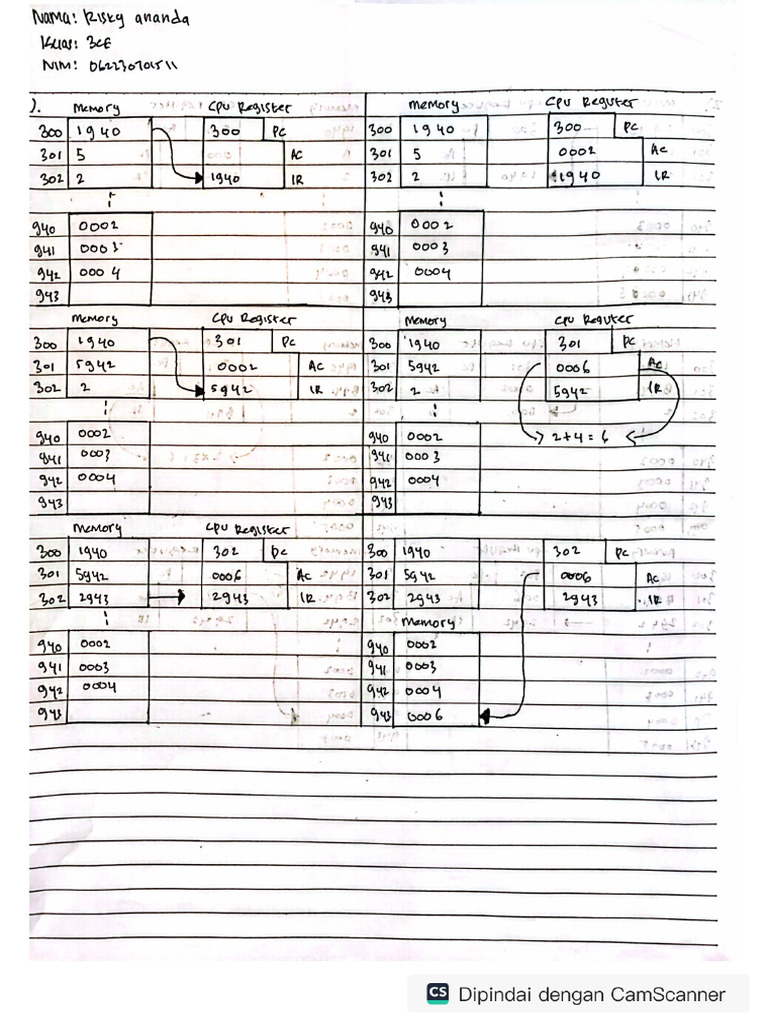 Nama: Risky ananda
Kelas: 3CE
NIM: 062230701511
).
Memory CPU Register
300 1940 300 PC
301 5 AC
302 2 1940 IR
940 0002
941 0003
942 0004
943
memory CPU Register
300 1940 300 PC
301 5 0002 AC
302 2 1940 IR
940 0002
941 0003
942 0004
943
Memory CPU Register
300 1940 301 PC
301 5942 0002 AC
302 2 5942 IR
940 0002
941 0003
942 0004
943
Memory CPU Register
300 1940 301 PC
301 5942 0006 AC
302 2 5942 IR
2+4=6
940 0002
941 0003
942 0004
943
Memory CPU Register
300 1940 302 PC
301 5942 0006 AC
302 2943 2943 IR
940 0002
941 0003
942 0004
943
300 1940 302 PC
301 5942 0006 AC
302 2943 2943 IR
Memory
940 0002
941 0003
942 0004
943 0006
CS Dipindai dengan CamScanner